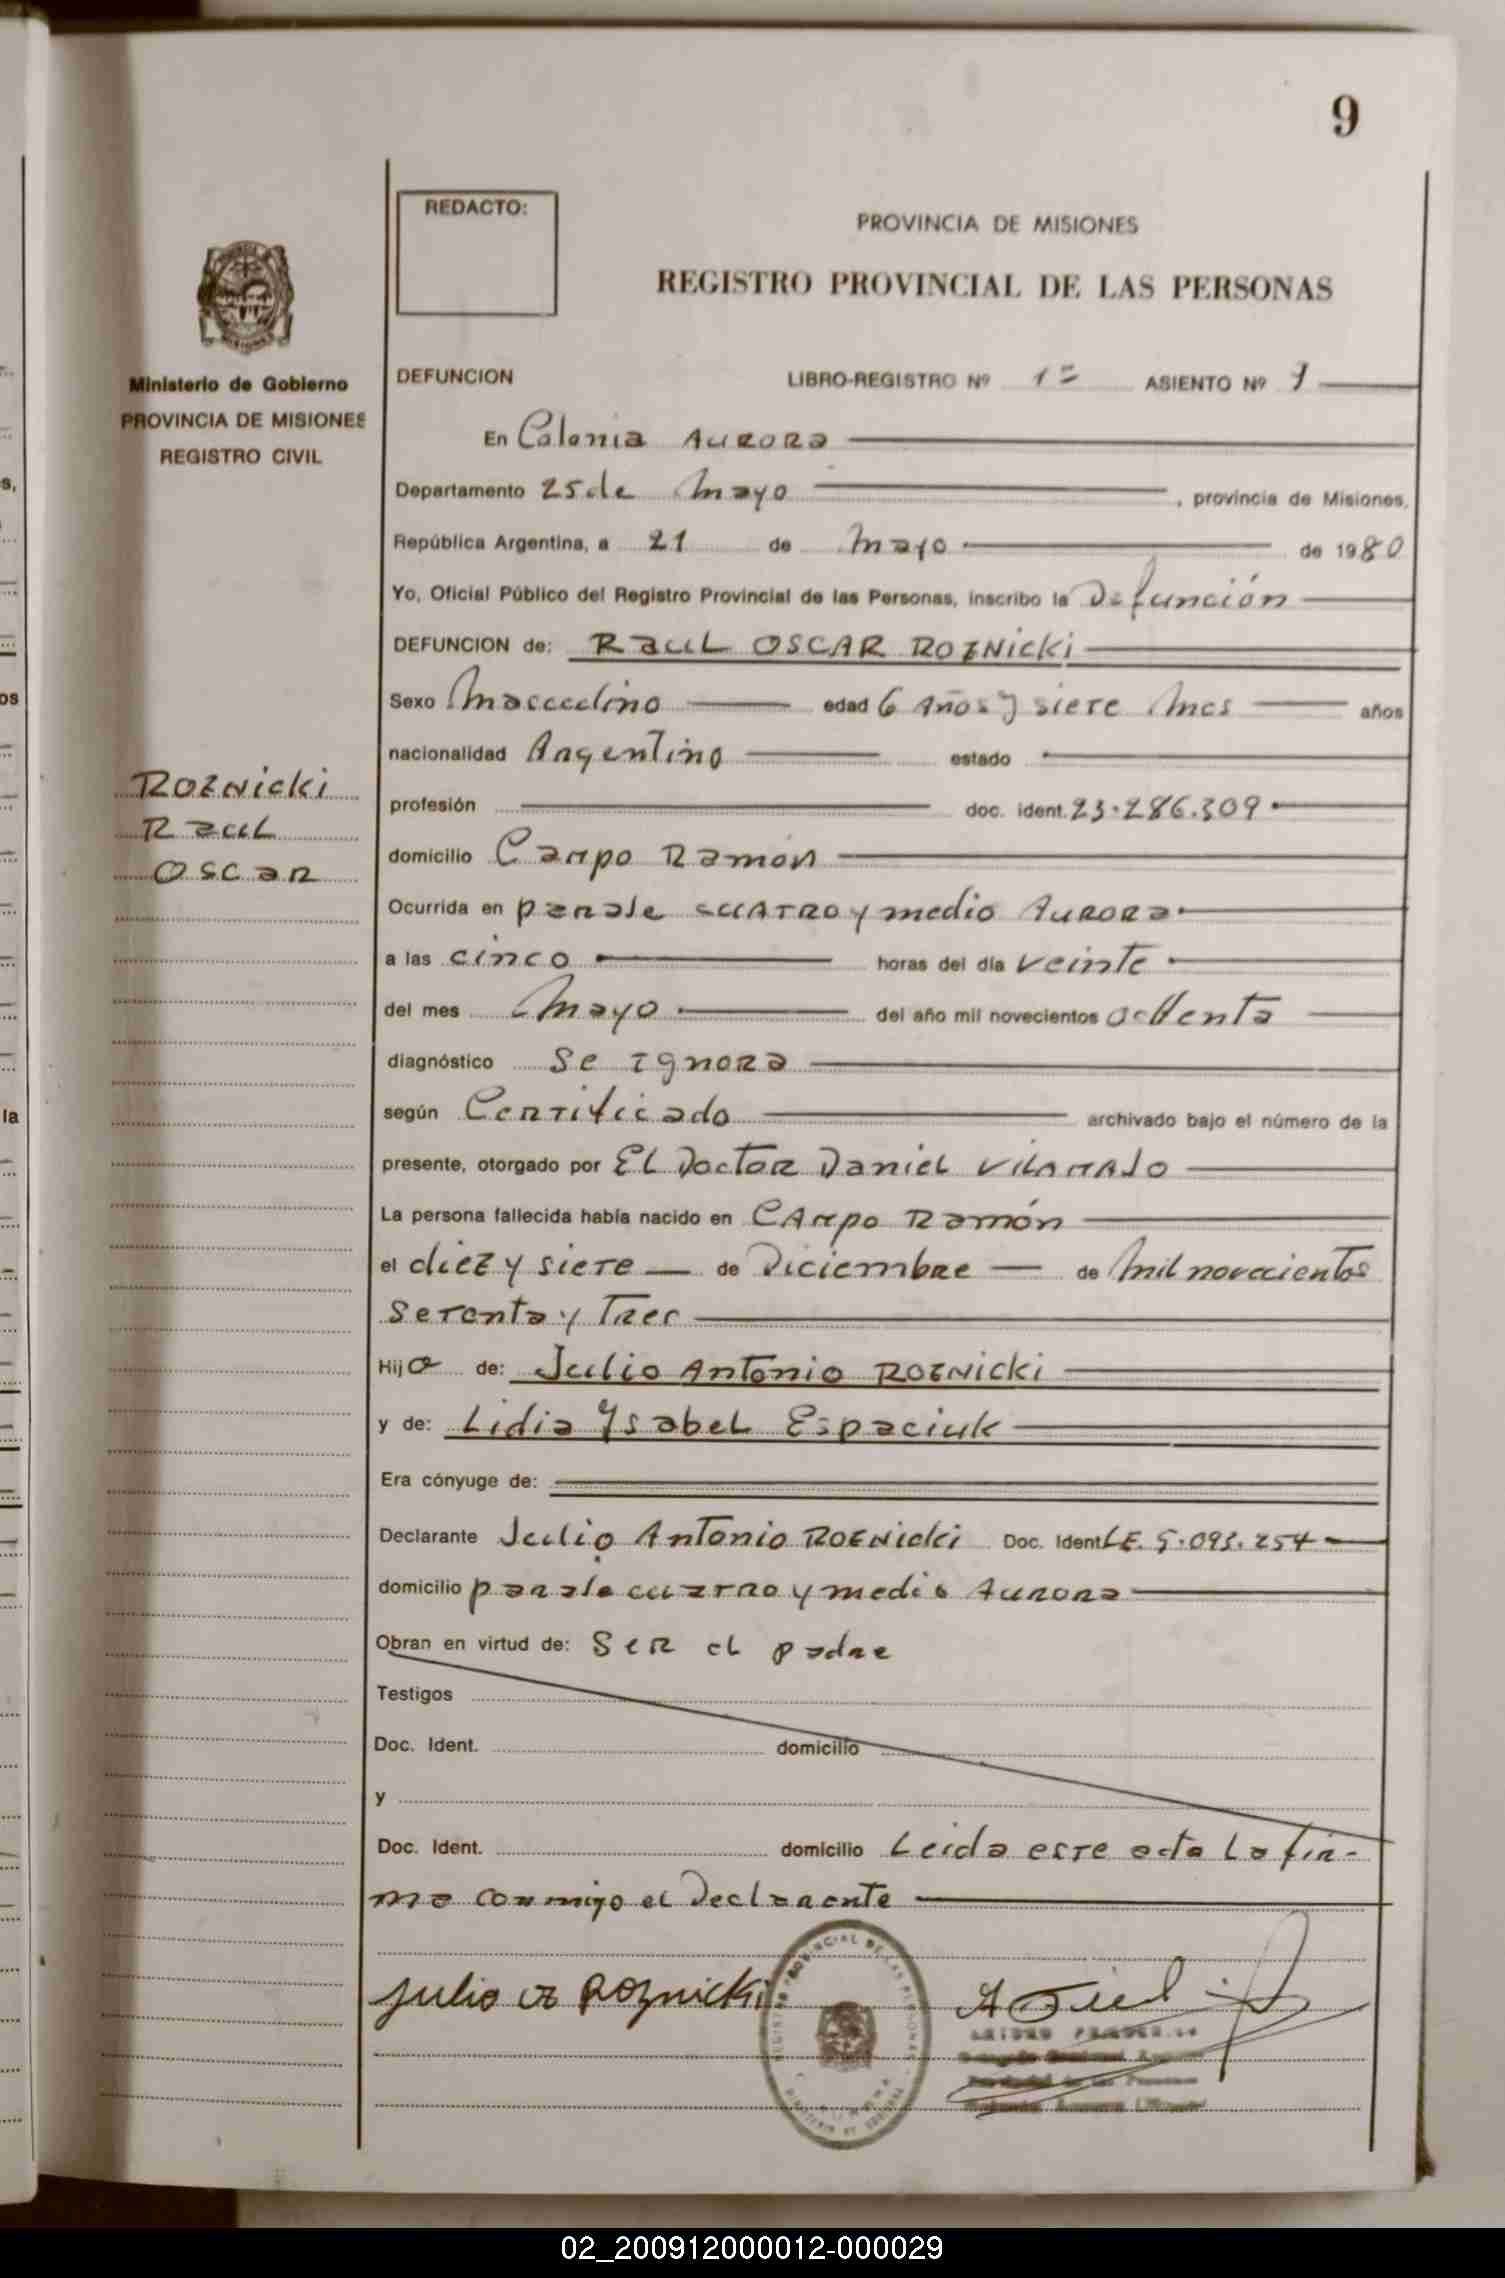 9
REDACTO:
PROVINCIA DE MISIONES
REGISTRO PROVINCIAL DE LAS PERSONAS
Ministerio de Gobierno
PROVINCIA DE MISIONES
REGISTRO CIVIL
DEFUNCION LIBRO-REGISTRO Nº 1º ASIENTO Nº 9
En Colonia Aurora
Departamento 25 de Mayo, provincia de Misiones,
República Argentina, a 21 de Mayo de 1980
Yo, Oficial Público del Registro Provincial de las Personas, inscribo la Defunción
DEFUNCION de: RAUL OSCAR ROZNicki
Sexo Masculino edad 6 Años y siete Mes años
nacionalidad Argentino estado
Roznicki
Raul
Oscar
profesión doc. ident. 23.286.309
domicilio Campo Ramón
Ocurrida en paraje cuatro y medio Aurora
a las cinco horas del día veinte
del mes Mayo del año mil novecientos ochenta
diagnóstico Se ignora
según Certificado archivado bajo el número de la
presente, otorgado por El Doctor Daniel
La persona fallecida había nacido en Campo Ramón
el diez y siete de Diciembre de Mil novecientos
Setenta y Tres
Hijo de: Julio Antonio Roznicki
y de: Lidia Ysabel Espaciuk
Era cónyuge de:
Declarante Julio Antonio Roznicki Doc. Ident. LE. 5.093.254
domicilio paraje cuatro y medio Aurora
Obran en virtud de: Ser el padre
Testigos
Doc. Ident. domicilio
y
Doc. Ident. domicilio Leida este acta La fir-
ma conmigo el Declarante
Julio A Roznicki
02_200912000012-000029